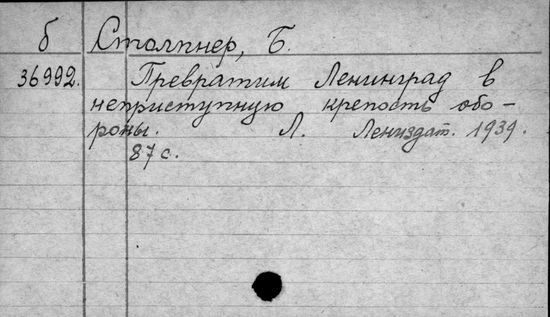 б Столпнер, Б.
36992. Превратим Ленинград в
неприступную крепость обо-
роны. Л. Лениздат. 1939.
87 с.